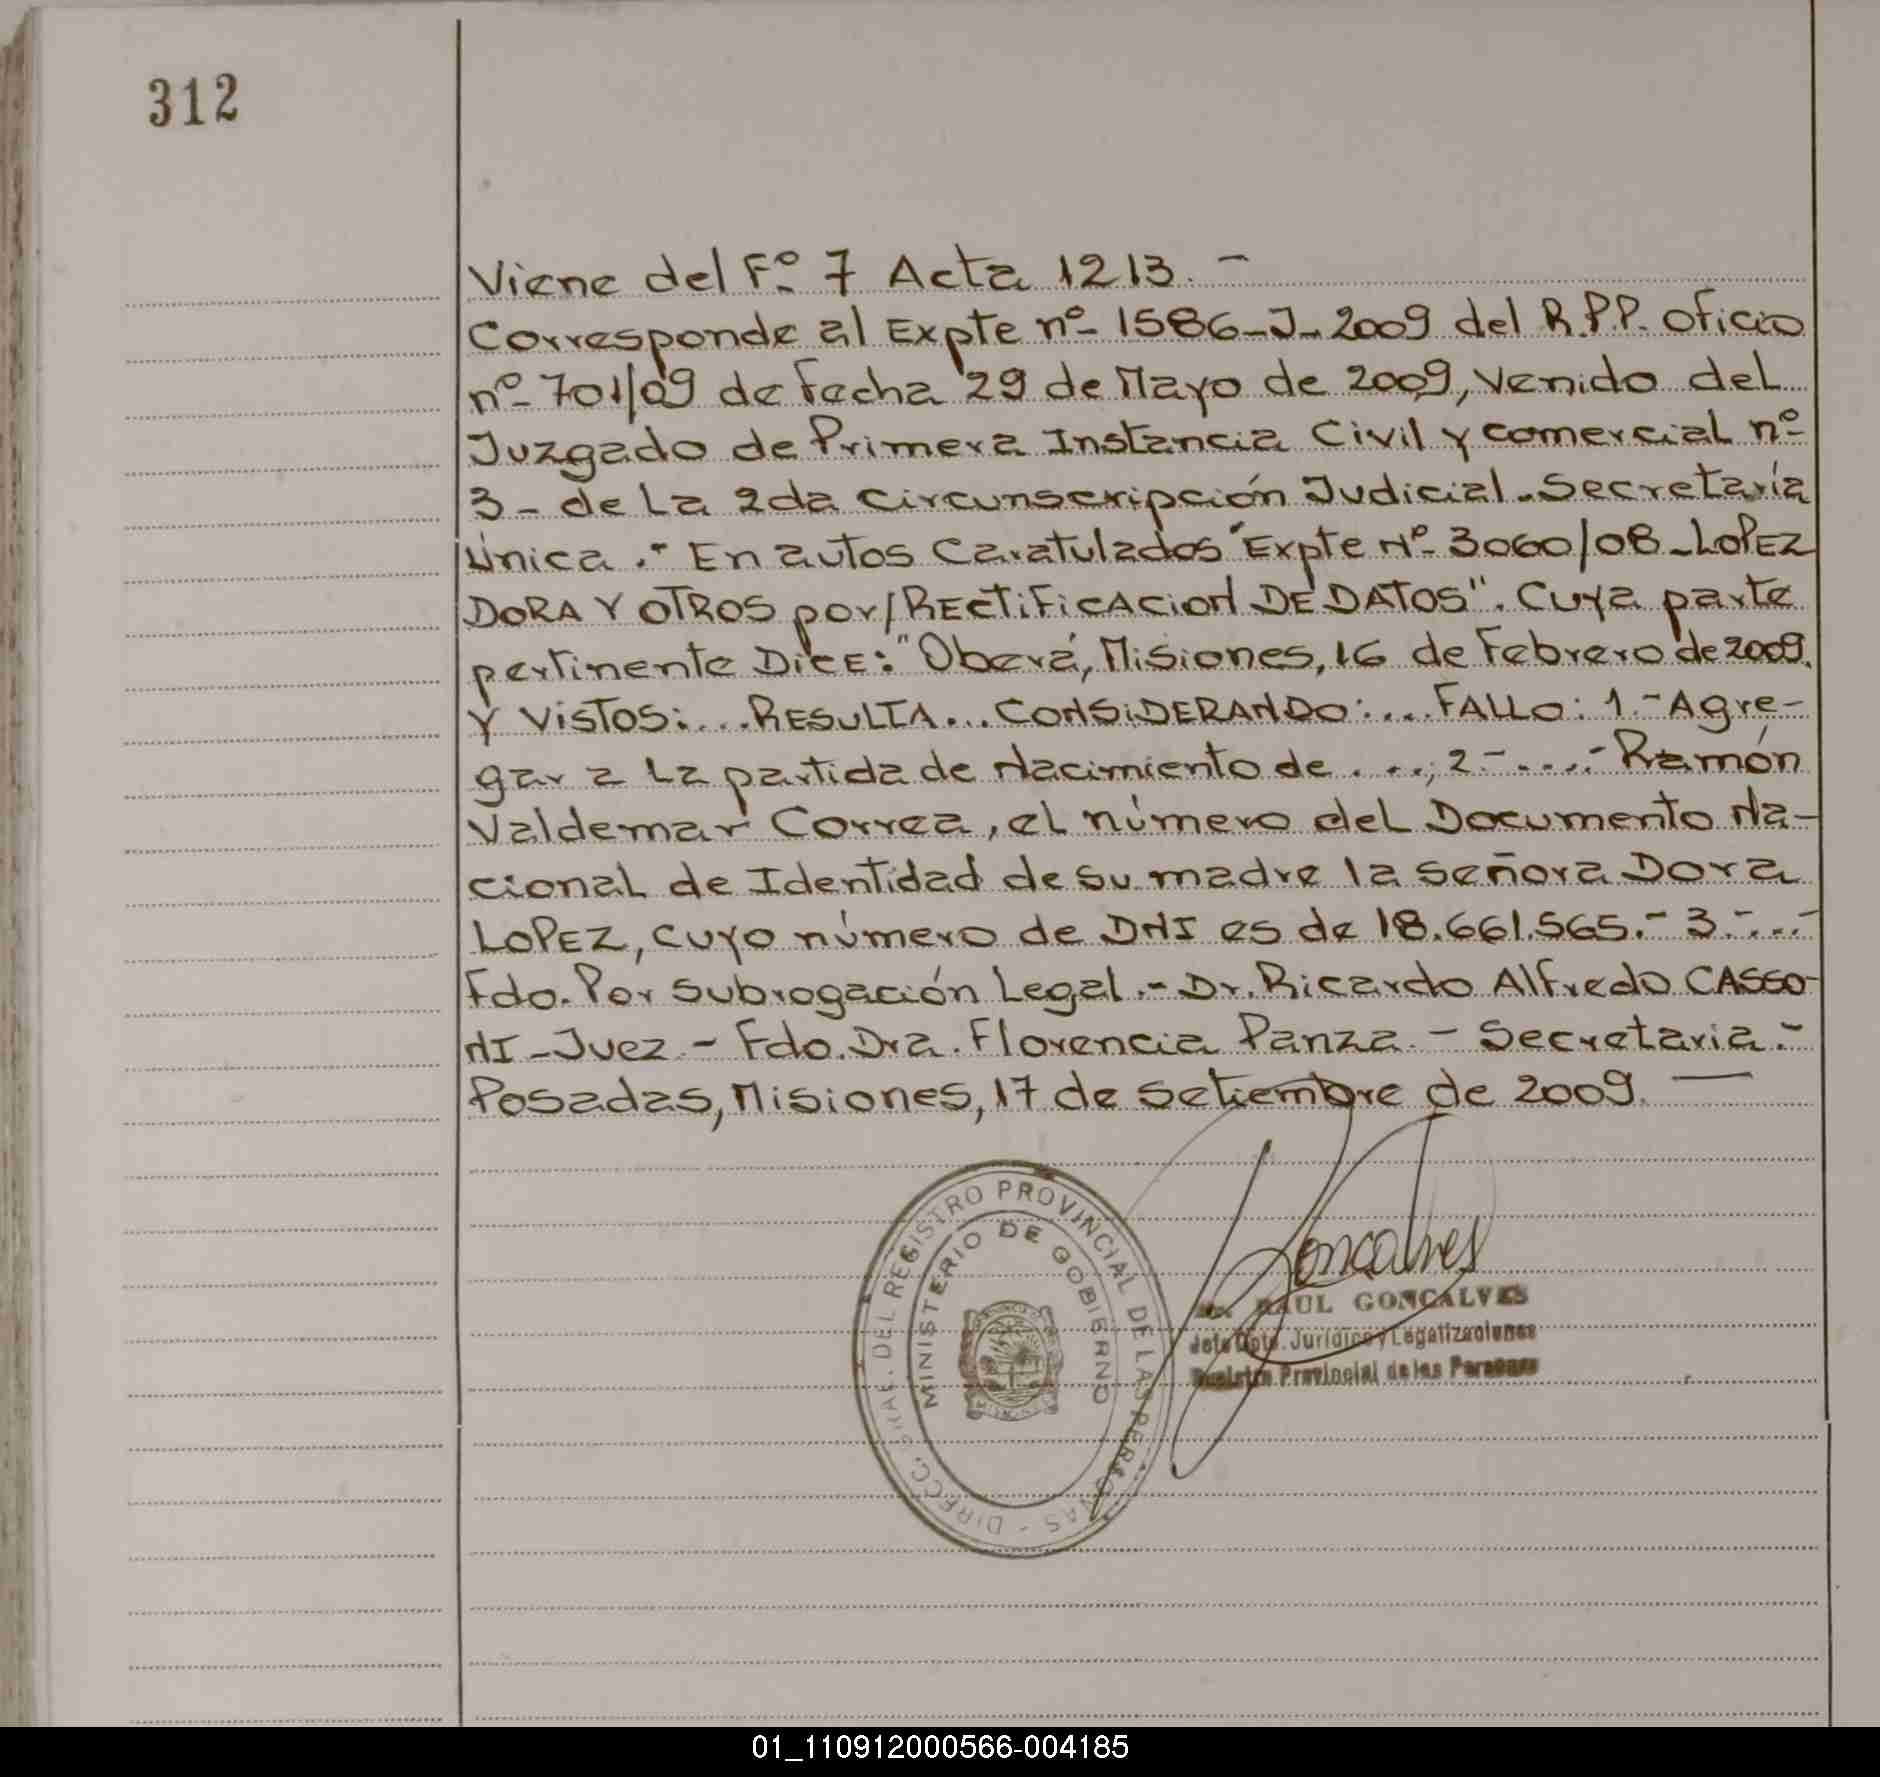 312
Viene del Fº 7 Acta 1213. -
Corresponde al Expte nº 1586-J-2009 del R.P.P. oficio
nº 701/09 de Fecha 29 de Mayo de 2009, venido del
Juzgado de Primera Instancia Civil y comercial nº
3- de La 2da Circunscripción Judicial. Secretaría
Única.- En autos Caratulados "Expte Nº 3060/08-LOPEZ
DORA Y OTROS por/RECTIFICACION DE DATOS". Cuya parte
pertinente DICE: "Oberá, Misiones, 16 de Febrero de 2009.
Y VISTOS:...RESULTA...CONSIDERANDO:...FALLO: 1.- Agre-
gar a La partida de Nacimiento de ...; 2.-....- Ramón
Valdemar Correa, el número del Documento Na-
cional de Identidad de su madre la señora Dora
LOPEZ, cuyo número de DNI es de 18.661.565.- 3.-...-
Fdo. Por Subrogación Legal.- Dr. Ricardo Alfredo CASSO-
NI-Juez.- Fdo. Dra. Florencia Panza.- Secretaria.-
Posadas, Misiones, 17 de setiembre de 2009. —
DIRECC. GRAL. DEL REGISTRO PROVINCIAL DE LAS PERSONAS -
MINISTERIO DE GOBIERNO
Goncalves
RAUL GONCALVES
Jefe Dpto. Jurídico y Legalizaciones
Registro Provincial de las Personas
01_110912000566-004185